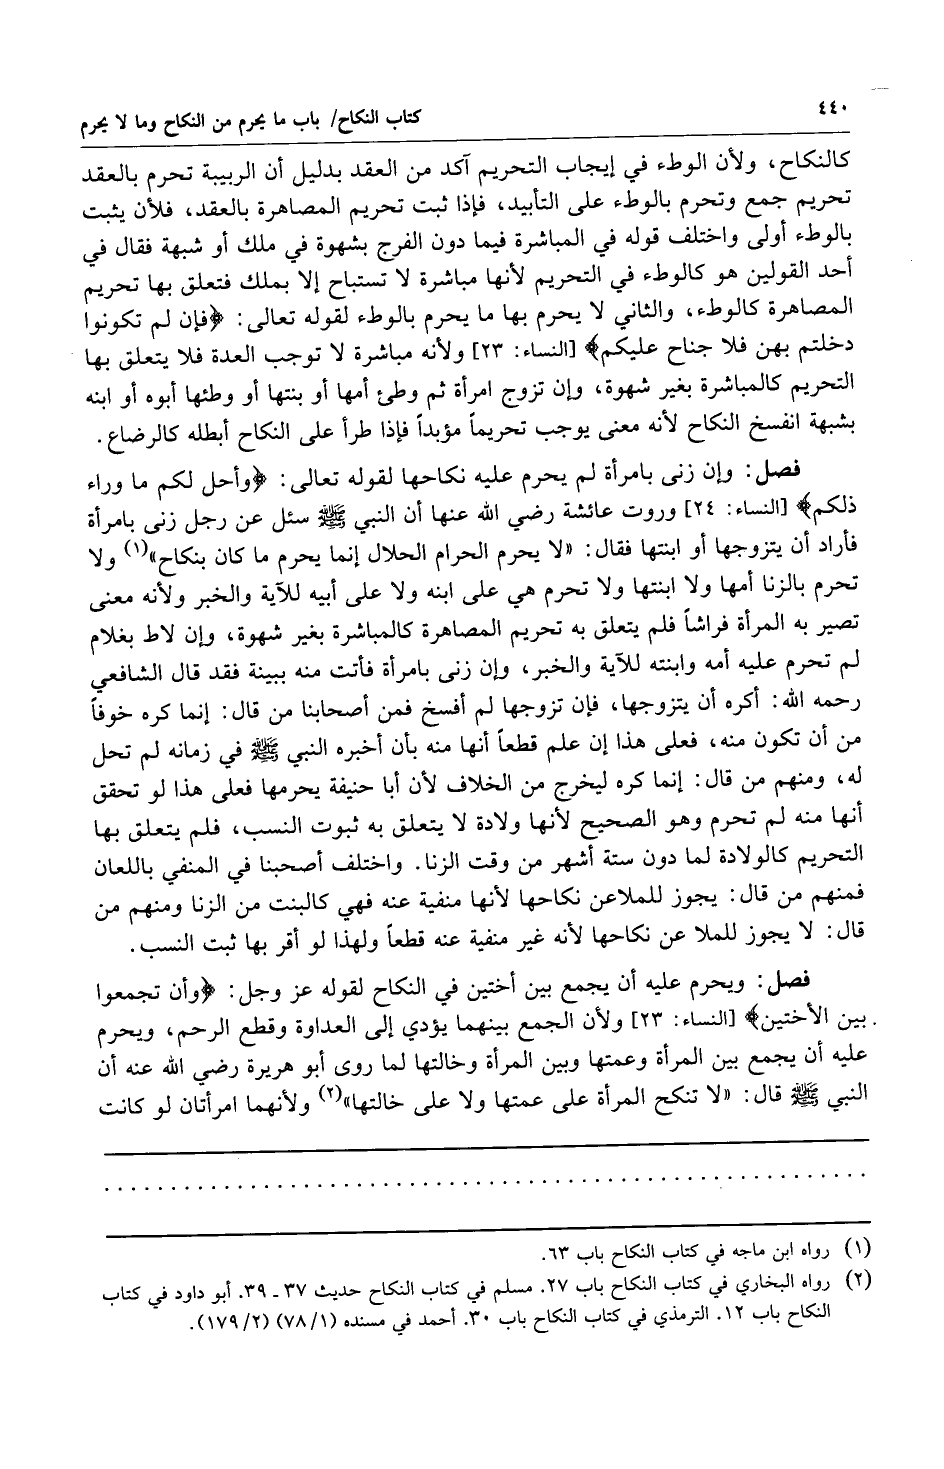 ٤٤٠
كتاب النكاح/ باب ما يحرم من النكاح وما لا يحرم
كالنكاح، ولأن الوطء في إيجاب التحريم آكد من العقد بدليل أن الربيبة تحرم بالعقد
تحريم جمع وتحرم بالوطء على التأبيد، فإذا ثبت تحريم المصاهرة بالعقد، فلأن يثبت
بالوطء أولى واختلف قوله في المباشرة فيما دون الفرج بشهوة في ملك أو شبهة فقال في
أحد القولين هو كالوطء في التحريم لأنها مباشرة لا تستباح إلا بملك فتعلق بها تحريم
المصاهرة كالوطء، والثاني لا يحرم بها ما يحرم بالوطء لقوله تعالى: ﴿فإن لم تكونوا
دخلتم بهن فلا جناح عليكم﴾ [النساء: ٢٣] ولأنه مباشرة لا توجب العدة فلا يتعلق بها
التحريم كالمباشرة بغير شهوة، وإن تزوج امرأة ثم وطئ أمها أو بنتها أو وطئها أبوه أو ابنه
بشبهة انفسخ النكاح لأنه معنى يوجب تحريماً مؤبداً فإذا طرأ على النكاح أبطله كالرضاع.
فصل: وإن زنى بامرأة لم يحرم عليه نكاحها لقوله تعالى: ﴿وأحل لكم ما وراء
ذلكم﴾ [النساء: ٢٤] وروت عائشة رضي الله عنها أن النبي ﷺ سئل عن رجل زنى بامرأة
فأراد أن يتزوجها أو ابنتها فقال: «لا يحرم الحرام الحلال إنما يحرم ما كان بنكاح»(١) ولا
تحرم بالزنا أمها ولا ابنتها ولا تحرم هي على ابنه ولا على أبيه للآية والخبر ولأنه معنى
تصير به المرأة فراشاً فلم يتعلق به تحريم المصاهرة كالمباشرة بغير شهوة، وإن لاط بغلام
لم تحرم عليه أمه وابنته للآية والخبر، وإن زنى بامرأة فأتت منه ببينة فقد قال الشافعي
رحمه الله: أكره أن يتزوجها، فإن تزوجها لم أفسخ فمن أصحابنا من قال: إنما كره خوفاً
من أن تكون منه، فعلى هذا إن علم قطعاً أنها منه بأن أخبره النبي ﷺ في زمانه لم تحل
له، ومنهم من قال: إنما كره ليخرج من الخلاف لأن أبا حنيفة يحرمها فعلى هذا لو تحقق
أنها منه لم تحرم وهو الصحيح لأنها ولادة لا يتعلق به ثبوت النسب، فلم يتعلق بها
التحريم كالولادة لما دون ستة أشهر من وقت الزنا. واختلف أصحبنا في المنفي باللعان
فمنهم من قال: يجوز للملاعن نكاحها لأنها منفية عنه فهي كالبنت من الزنا ومنهم من
قال: لا يجوز للملا عن نكاحها لأنه غير منفية عنه قطعاً ولهذا لو أقر بها ثبت النسب.
فصل: ويحرم عليه أن يجمع بين أختين في النكاح لقوله عز وجل: ﴿وأن تجمعوا
بين الأختين﴾ [النساء: ٢٣] ولأن الجمع بينهما يؤدي إلى العداوة وقطع الرحم، ويحرم
عليه أن يجمع بين المرأة وعمتها وبين المرأة وخالتها لما روى أبو هريرة رضي الله عنه أن
النبي ﷺ قال: «لا تنكح المرأة على عمتها ولا على خالتها»(٢) ولأنهما امرأتان لو كانت
(١) رواه ابن ماجه في كتاب النكاح باب ٦٣.
(٢) رواه البخاري في كتاب النكاح باب ٢٧. مسلم في كتاب النكاح حديث ٣٧ ـ ٣٩. أبو داود في كتاب
النكاح باب ١٢. الترمذي في كتاب النكاح باب ٣٠. أحمد في مسنده (١/ ٧٨) (٢/ ١٧٩).